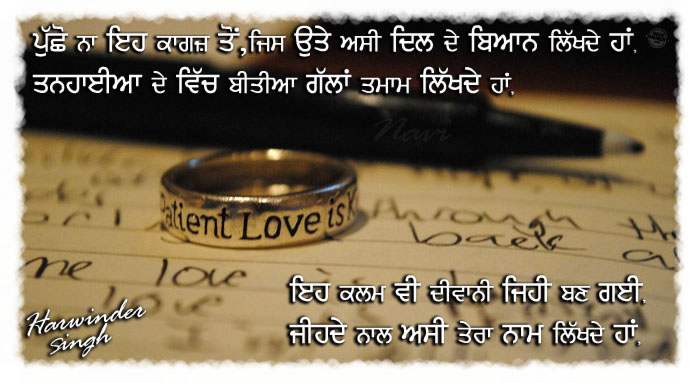 ਪੁੱਛੋ ਨਾ ਇਹ ਕਾਗਜ਼ ਤੋਂ,ਜਿਸ ਉਤੇ ਅਸੀ ਦਿਲ ਦੇ ਬਿਆਨ ਲਿੱਖਦੇ ਹਾਂ,
ਤਨਹਾਈਆ ਦੇ ਵਿੱਚ ਬੀਤੀਆ ਗੱਲਾਂ ਤਮਾਮ ਲਿੱਖਦੇ ਹਾਂ,
Navi
Patient Love is
through
back
me love
love
ਇਹ ਕਲਮ ਵੀ ਦੀਵਾਨੀ ਜਿਹੀ ਬਣ ਗਈ,
ਜੀਹਦੇ ਨਾਲ ਅਸੀ ਤੇਰਾ ਨਾਮ ਲਿੱਖਦੇ ਹਾਂ,
Harwinder
Singh